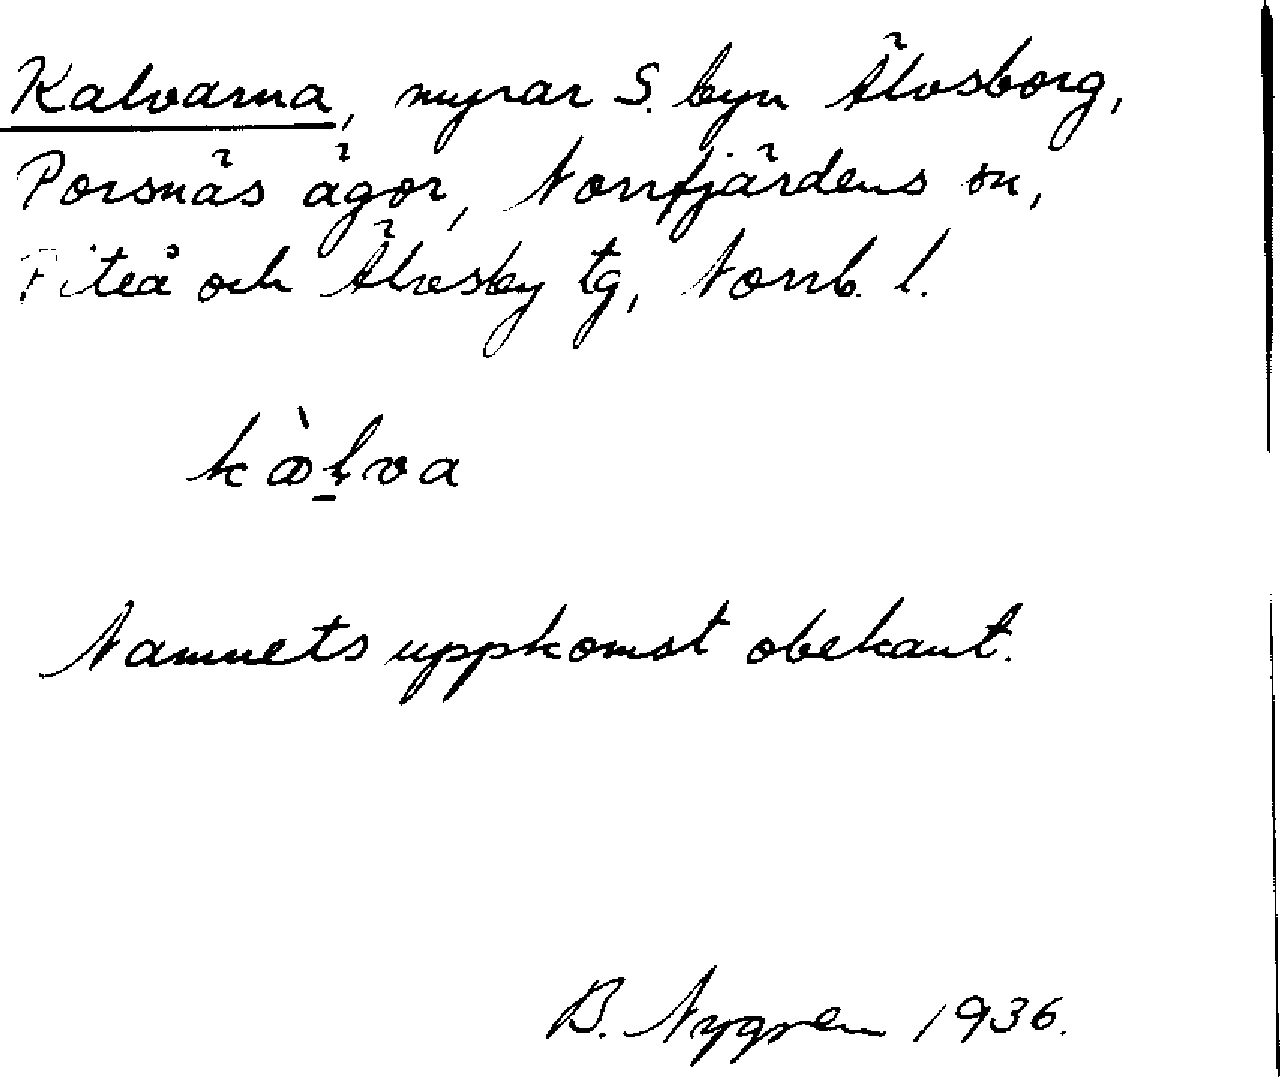 Kalvarna, myrar S. byn Älvsborg,
Porsnäs ägor, Norrfjärdens sn,
Piteå och Älvsby tg, Norrb. l.
kòḷva
Namnets uppkomst obekant.
B. Nygren 1936.